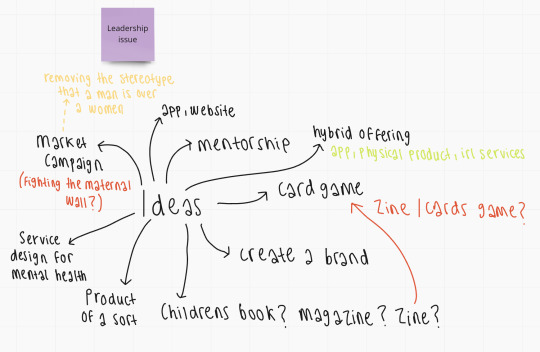 Leadership
issue
removing the stereotype
that a man is over
a women
app, website
mentorship
hybrid offering
app, physical product, irl services
Market
Campaign
(Fighting the maternal
wall?)
Ideas
card game
Zine / cards game?
Service
design for
mental health
create a brand
Product
of a sort
Childrens book? magazine? Zine?